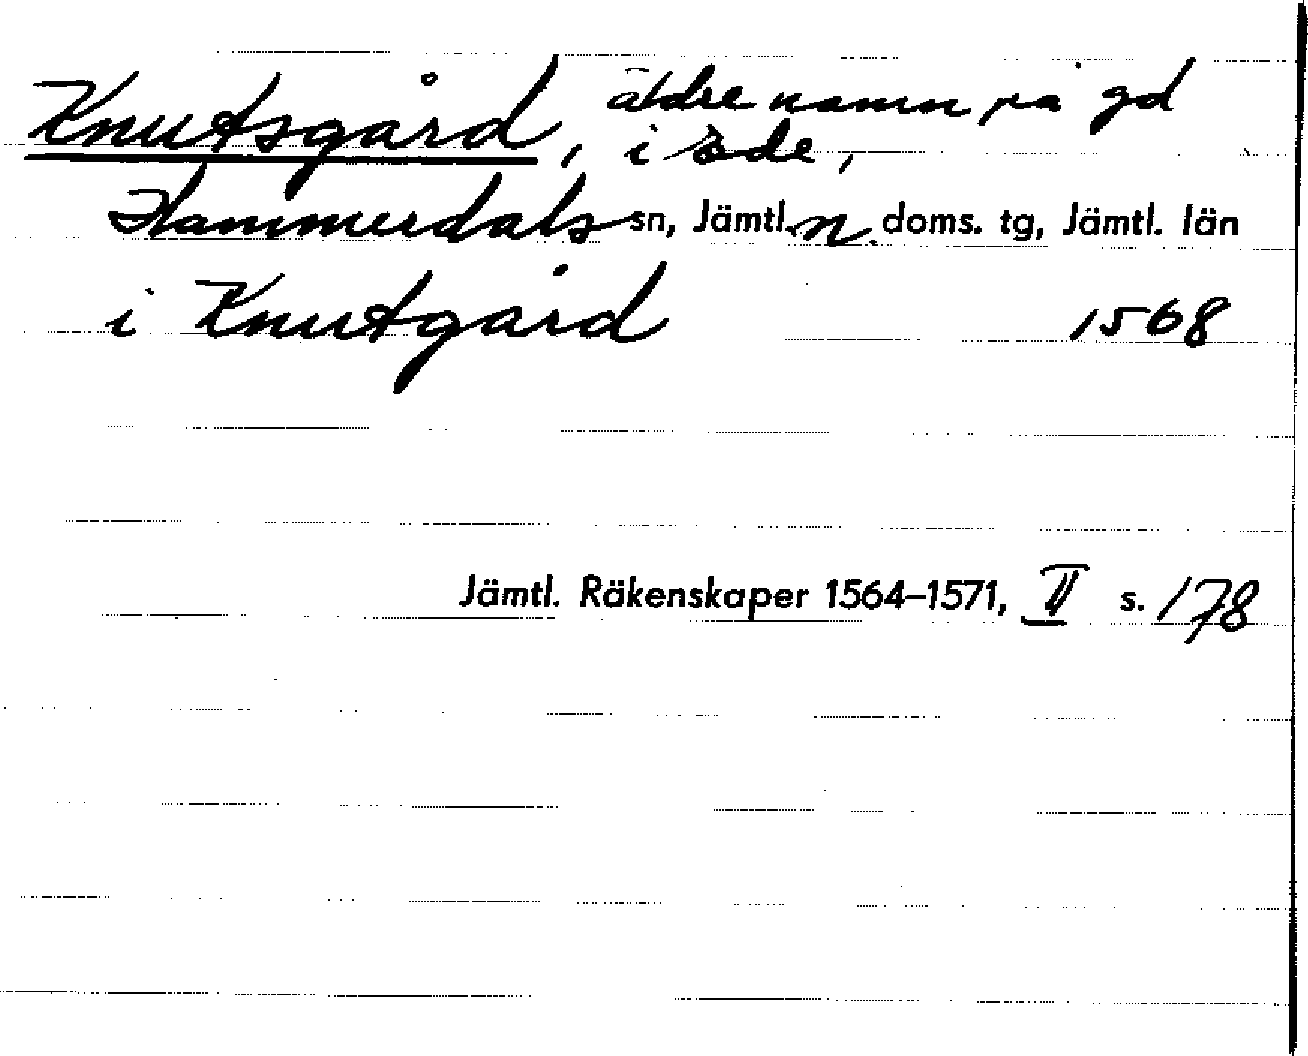 Knutsgård, äldre namn på gd
i Öde,
Hammerdals sn, Jämtl. n. doms. tg, Jämtl. län
i Knutgård 1568
Jämtl. Räkenskaper 1564–1571, II s. 178